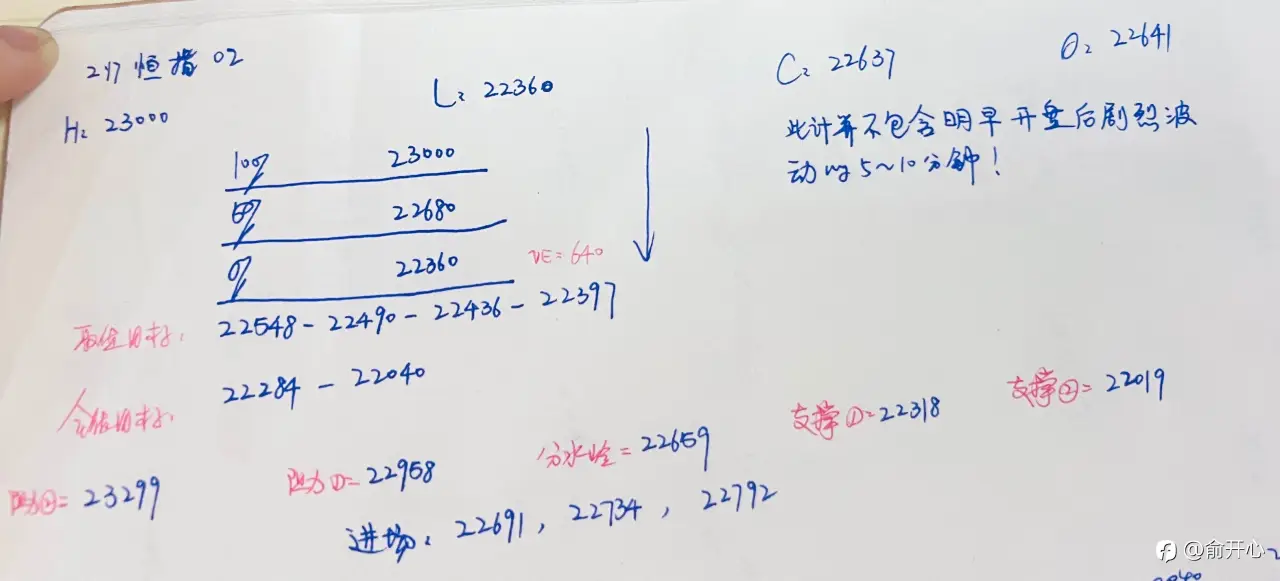 247 恒指 02
H: 23000
L: 22360
C: 22637
O: 22641
此计算不包含明早开盘后剧烈波
动的 5~10分钟!
100% 23000
50% 22680
0% 22360
VE=640
22548-22490-22436-22397
22284-22040
阻力②=23299
阻力①=22958
分水岭=22659
支撑①=22318
支撑②=22019
进场: 22691, 22734, 22792
@俞开心